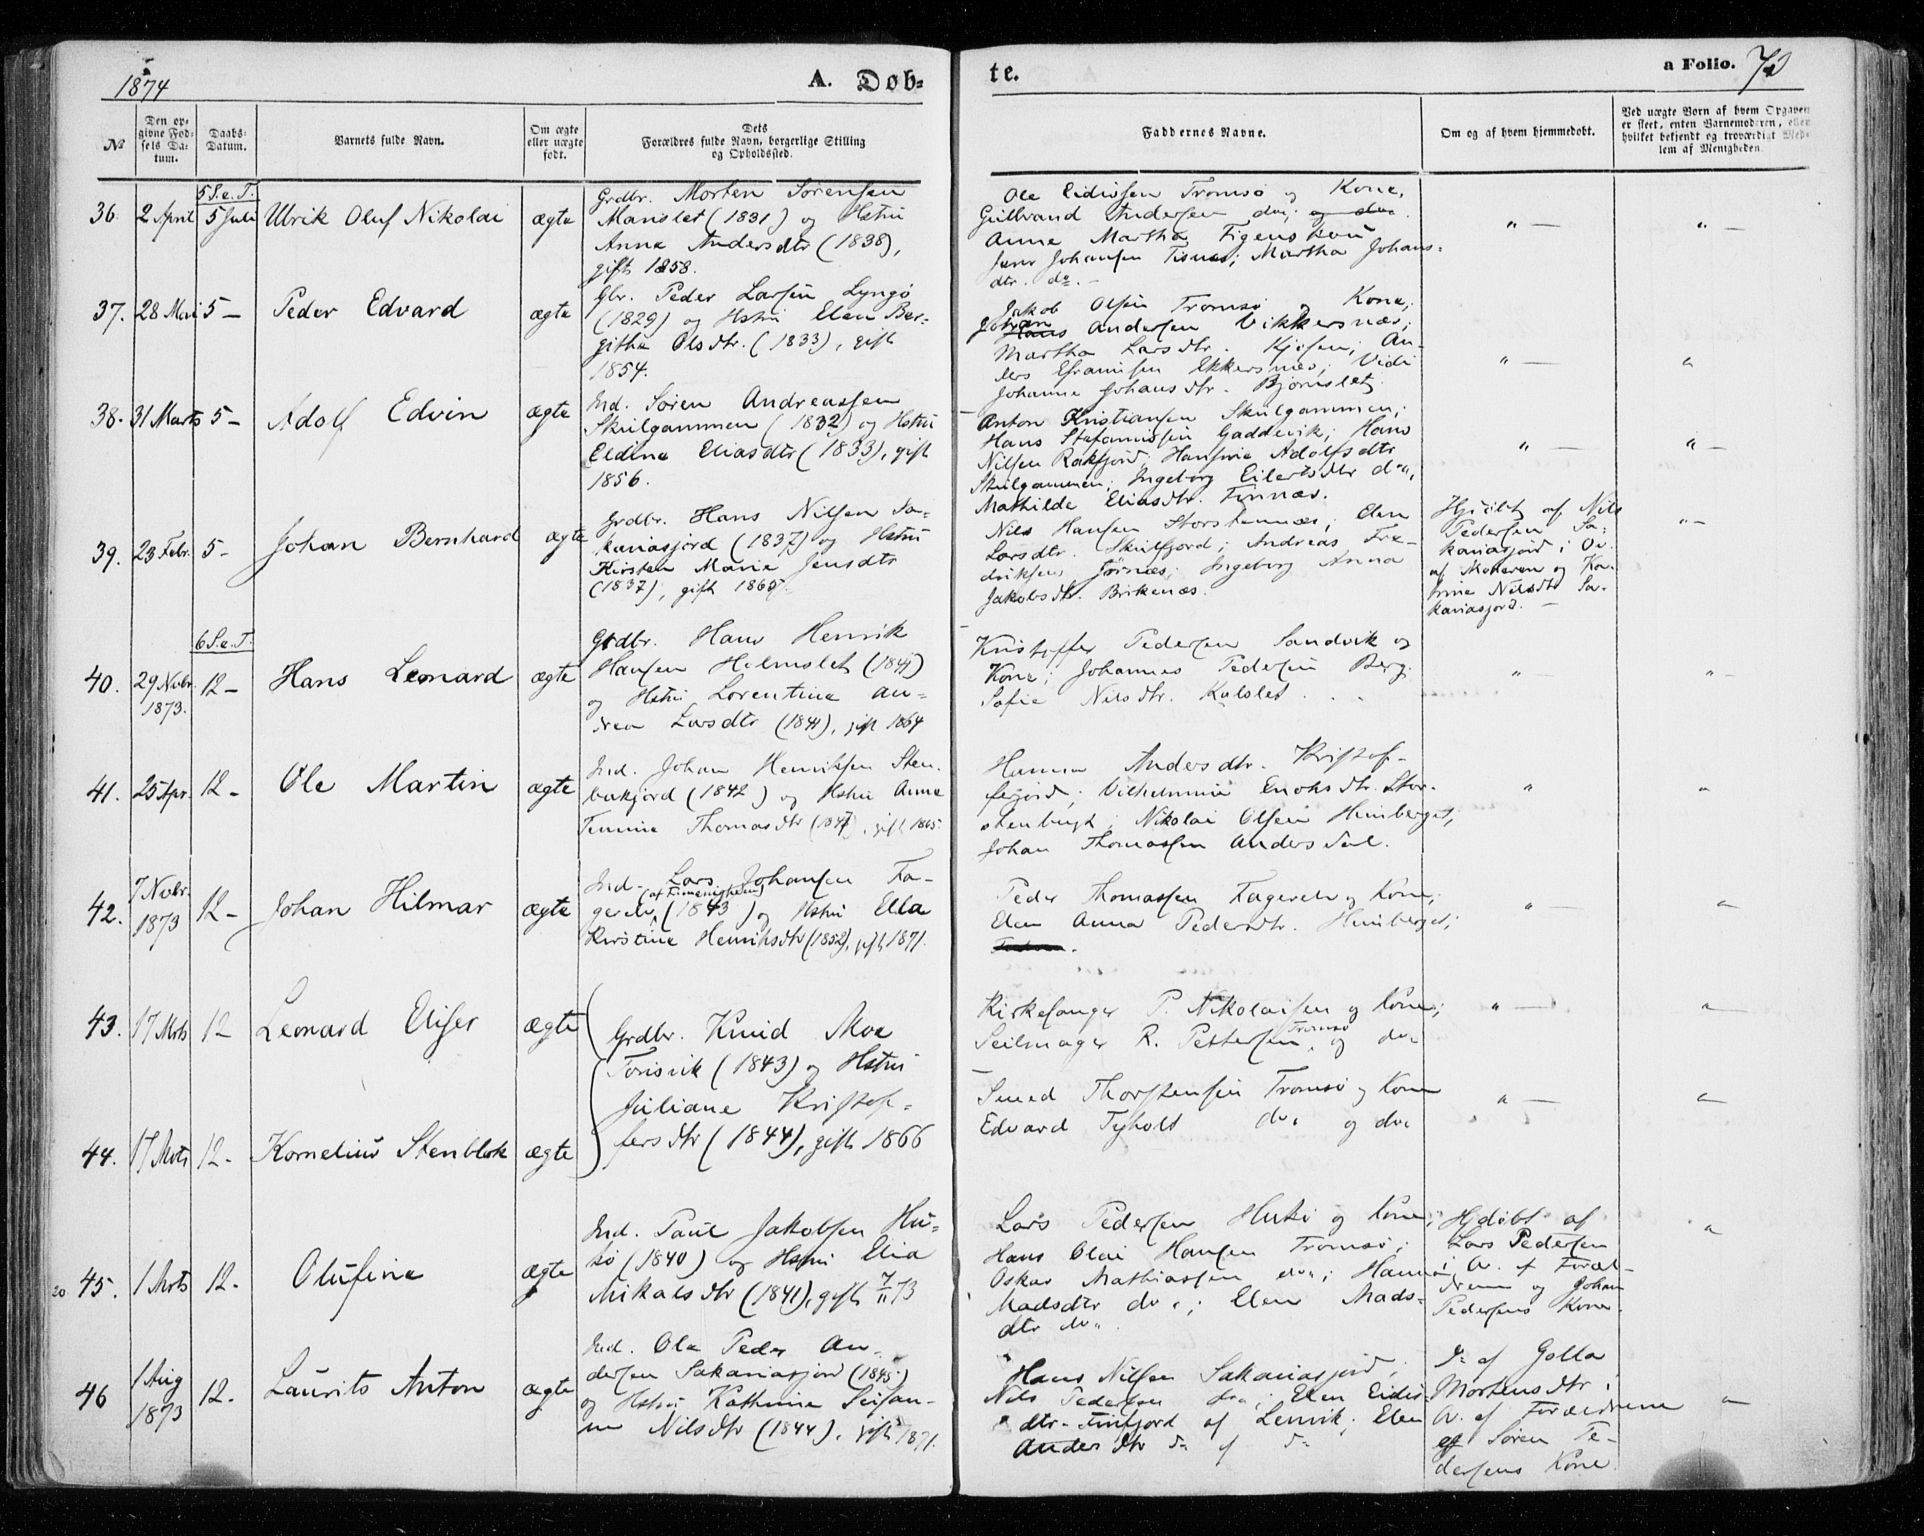 1874
A. Døb-
te.
a Folio. 70
№
Den op-
givne Fød-
sels Da-
tum.
Daabs-
Datum.
Barnets fulde Navn.
Om ægte
eller uægte
født.
Dets
Forældres fulde Navn, borgerlige Stilling
og Opholdssted.
Faddernes Navne.
Om og af hvem hjemmedøbt.
Ved uægte Børn af hvem Opgaven
er skeet, enten Barnemoderen, eller
hvilket bekjendt og troværdigt Med-
lem af Menigheden.
5 S. e. T.
36. 2 April 5 Juli Ulrik Oluf Nikolai ægte
Grdbr. Morten Sørensen
Manslet (1831) og Hstru
Anne Andersdtr (1838),
gift 1858.
Ole Tromsø og Kone,
Gulbrand Andersen do; og do.
Anne Martha Figenskou
Johansen Tisnes; Martha Johans-
dtr. do. -
" —
" —
37. 28 Mai 5 — Peder Edvard ægte
Gbr. Peder Larsen Lyngø
(1829) og Hstru Elen Ber-
githe Olsdtr. (1833), gift
1854.
Jakob Olsen Tromsø og Kone;
Johan Andersen Vikkersnæs;
Martha Larsdtr. Kjosen; An-
ders Efraimsen Ekkersnæs;
Johanne Johansdtr. Bjørnslet
" —
"
38. 31 Marts 5 — Adolf Edvin ægte
Ind. Søren Andreassen
Skulgammen (1832) og Hstru
Eldine Eliasdtr (1833), gift
1856.
Anton Kristiansen Skulgammen;
Hans Stefanussen Gaddevik; Hans
Nilsen Rakfjord, Hansine Adolfsdtr
Skulgammen; Ingeborg Eilertsdtr do,
Mathilde Eliasdtr. Finnæs.
" —
" —
39. 23 Febr. 5 - Johan Bernhard ægte
Grdbr. Hans Nilsen Sa-
kariasjord (1837) og Hstru
Kirsten Marie Jensdtr
(1837), gift 1865.
Nils Hansen Storstennæs; Elen
Larsdtr. Skulfjord; Andreas Fre-
driksen, ; Ingeborg Anna
Jakobsdtr. Birkenæs.
Hjdøbt af Nils
Pedersen Sa-
kariasjord i Ov.
af Moderen og Ka-
rine Nilsdtr Sa-
kariasjord. —
" —
6 S. e. T.
40. 29 Novbr 1873. 12 — Hans Leonard ægte
Grdbr. Hans Henrik
Hansen Holmslet (1841)
og Hstru Lorentine An-
drea Larsdtr (1841), gift 1864
Kristoffer Pedersen Sandvik og
Kone; Johannes Pedersen Berg
Sofie Nilsdtr. Kalslet.
" —
" —
41. 25 Apr. 12 - Ole Martin ægte
Ind. Johan Henriksen Sten-
bakjord (1842) og Hstru Anne
Thomasdtr (1847), gift 1865.
Hanna Andersdtr. Kristof-
ferjord; Vilhelmine Enoksdtr. Stor-
; Nikolai Olsen Himberget;
Johan Thomassen Andersdal.
"
"
42. 7 Novbr. 1873 12 — Johan Hilmar ægte
Ind. Lars Johansen Fa-
gerelv, (af Frimenigheden) (1843) og Hstru Ella
Kirstine Henriksdtr (1852), gift 1871.
Peder Thomassen Fagerelv og Kone;
Elen Anna Pedersdtr. Himberget;
" —
"
43. 17 Mrts 12 — Leonard Eliser ægte
Grdbr. Knud Moe
Torisvik (1843) og Hstru
Juliane Kristof-
fersdtr (1844), gift 1866
Kirkesanger P. Nikolaisen og Kone;
Seilmager R. Pettersen, Tromsø og do.
" —
"
Smed Thorstensen Tromsø og Kone
Edvard Tyholt do. og do.
" —
"
44. 17 Mrts 12 - Kornelius Stenblok ægte
20 45. 1 Mrts 12 - Olufine ægte
Ind. Paul Jakobsen Hu-
sø (1840) og Hstru Elia
Mikalsdtr (1841), gift 7/11 73
Lars Pedersen Husø og Kone,
Hans Olai Hansen Tromsø;
Oskar Mathiassen do.; Hanna
Madsdtr do.; Elen Mads-
dtr do.
Hjdøbt af
Lars Pedersen
i Ov. af Foræl-
drene og Johan
Pedersens Kone.
"
46 1 Aug 1873 12. Laurits Anton ægte
Ind. Ole Peder An-
dersen Sakariasjord (1845)
og Hstru Kathrine
Nilsdtr (1844), gift 1871.
Hans Nilsen Sakariasjord;
Nils Pedersen do; Elen
dtr. Finfjord af Lenvik; Elen
Andersdtr do af do
Do af Golla
Mortensdtr i
Ov. af Forældrene
og Søren Pe-
dersens Kone
"